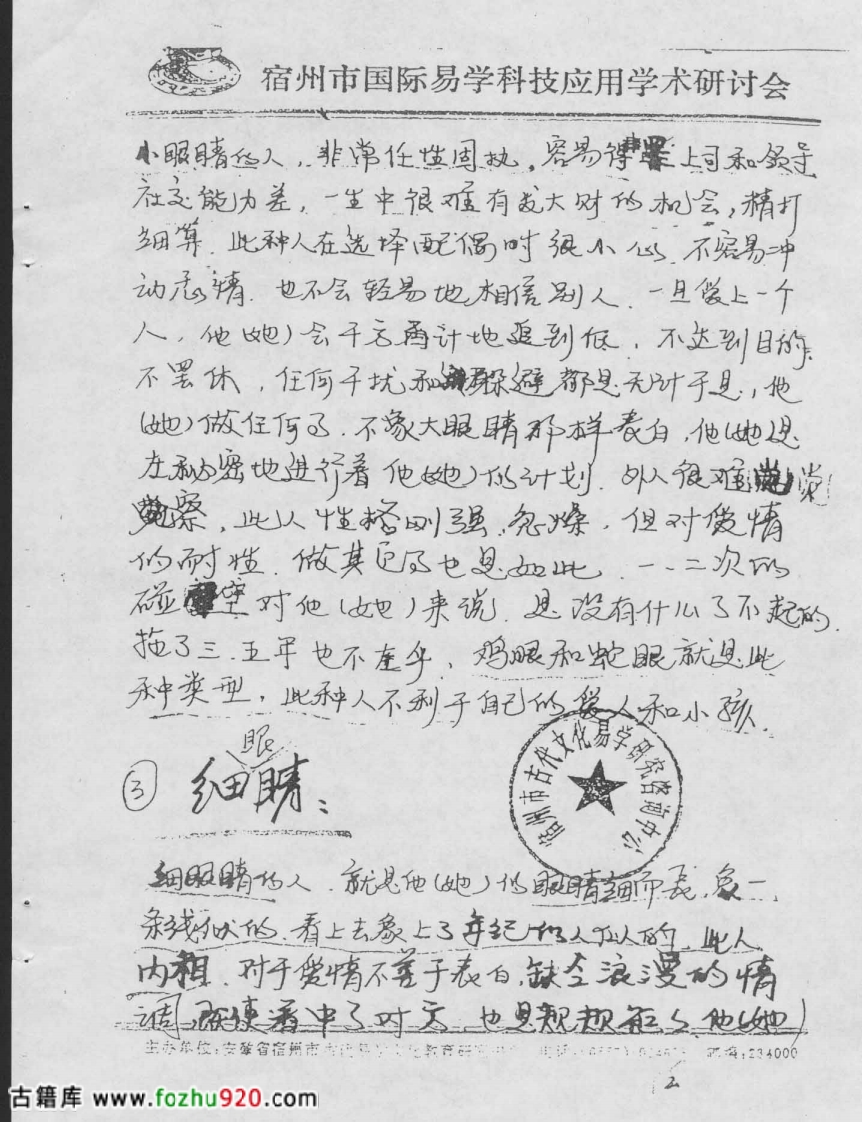 宿州市国际易学科技应用学术研讨会
小眼睛的人，非常任性固执，容易得罪上司和领导
社交能力差，一生中很难有发大财的机会，精打
细算．此种人在选择配偶时很小心．不容易冲
动感情．也不会轻易地相信别人．一旦爱上一个
人，他（她）会千方百计地追到底，不达到目的
不罢休，任何干扰和躲避都是无济于是，他
（她）做任何事．不象大眼睛那样表白，他（她）是
在秘密地进行着他（她）的计划．外人很难觉
察，此人性格刚强，急燥，但对爱情
的耐性．做其它事也是如此．一、二次的
碰壁对他（她）来说．是没有什么了不起的．
拖了三．五年也不在乎，鸡眼和蛇眼就是此
种类型，此种人不利于自己的爱人和小孩．
③ 细眼睛：
宿州市古代文化易学研究咨询中心
细眼睛的人．就是他（她）的眼睛细而长，象一
条线似的．看上去象上了年纪的人似的．此人
内相．对于爱情不善于表白，缺乏浪漫的情
调，即使看中了对方．也是规规矩矩，他（她）
主办单位：安徽省宿州市 邮编：234000
2
古籍库 www.fozhu920.com